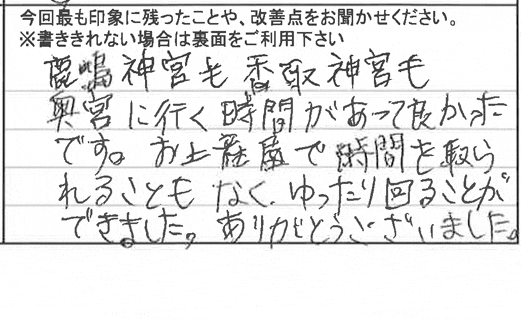 今回最も印象に残ったことや、改善点をお聞かせください。
※書ききれない場合は裏面をご利用下さい
鹿嶋神宮も香取神宮も
奥宮に行く時間があって良かった
です。お土産屋で時間を取ら
れることもなく、ゆったり回ることが
できました。ありがとうございました。